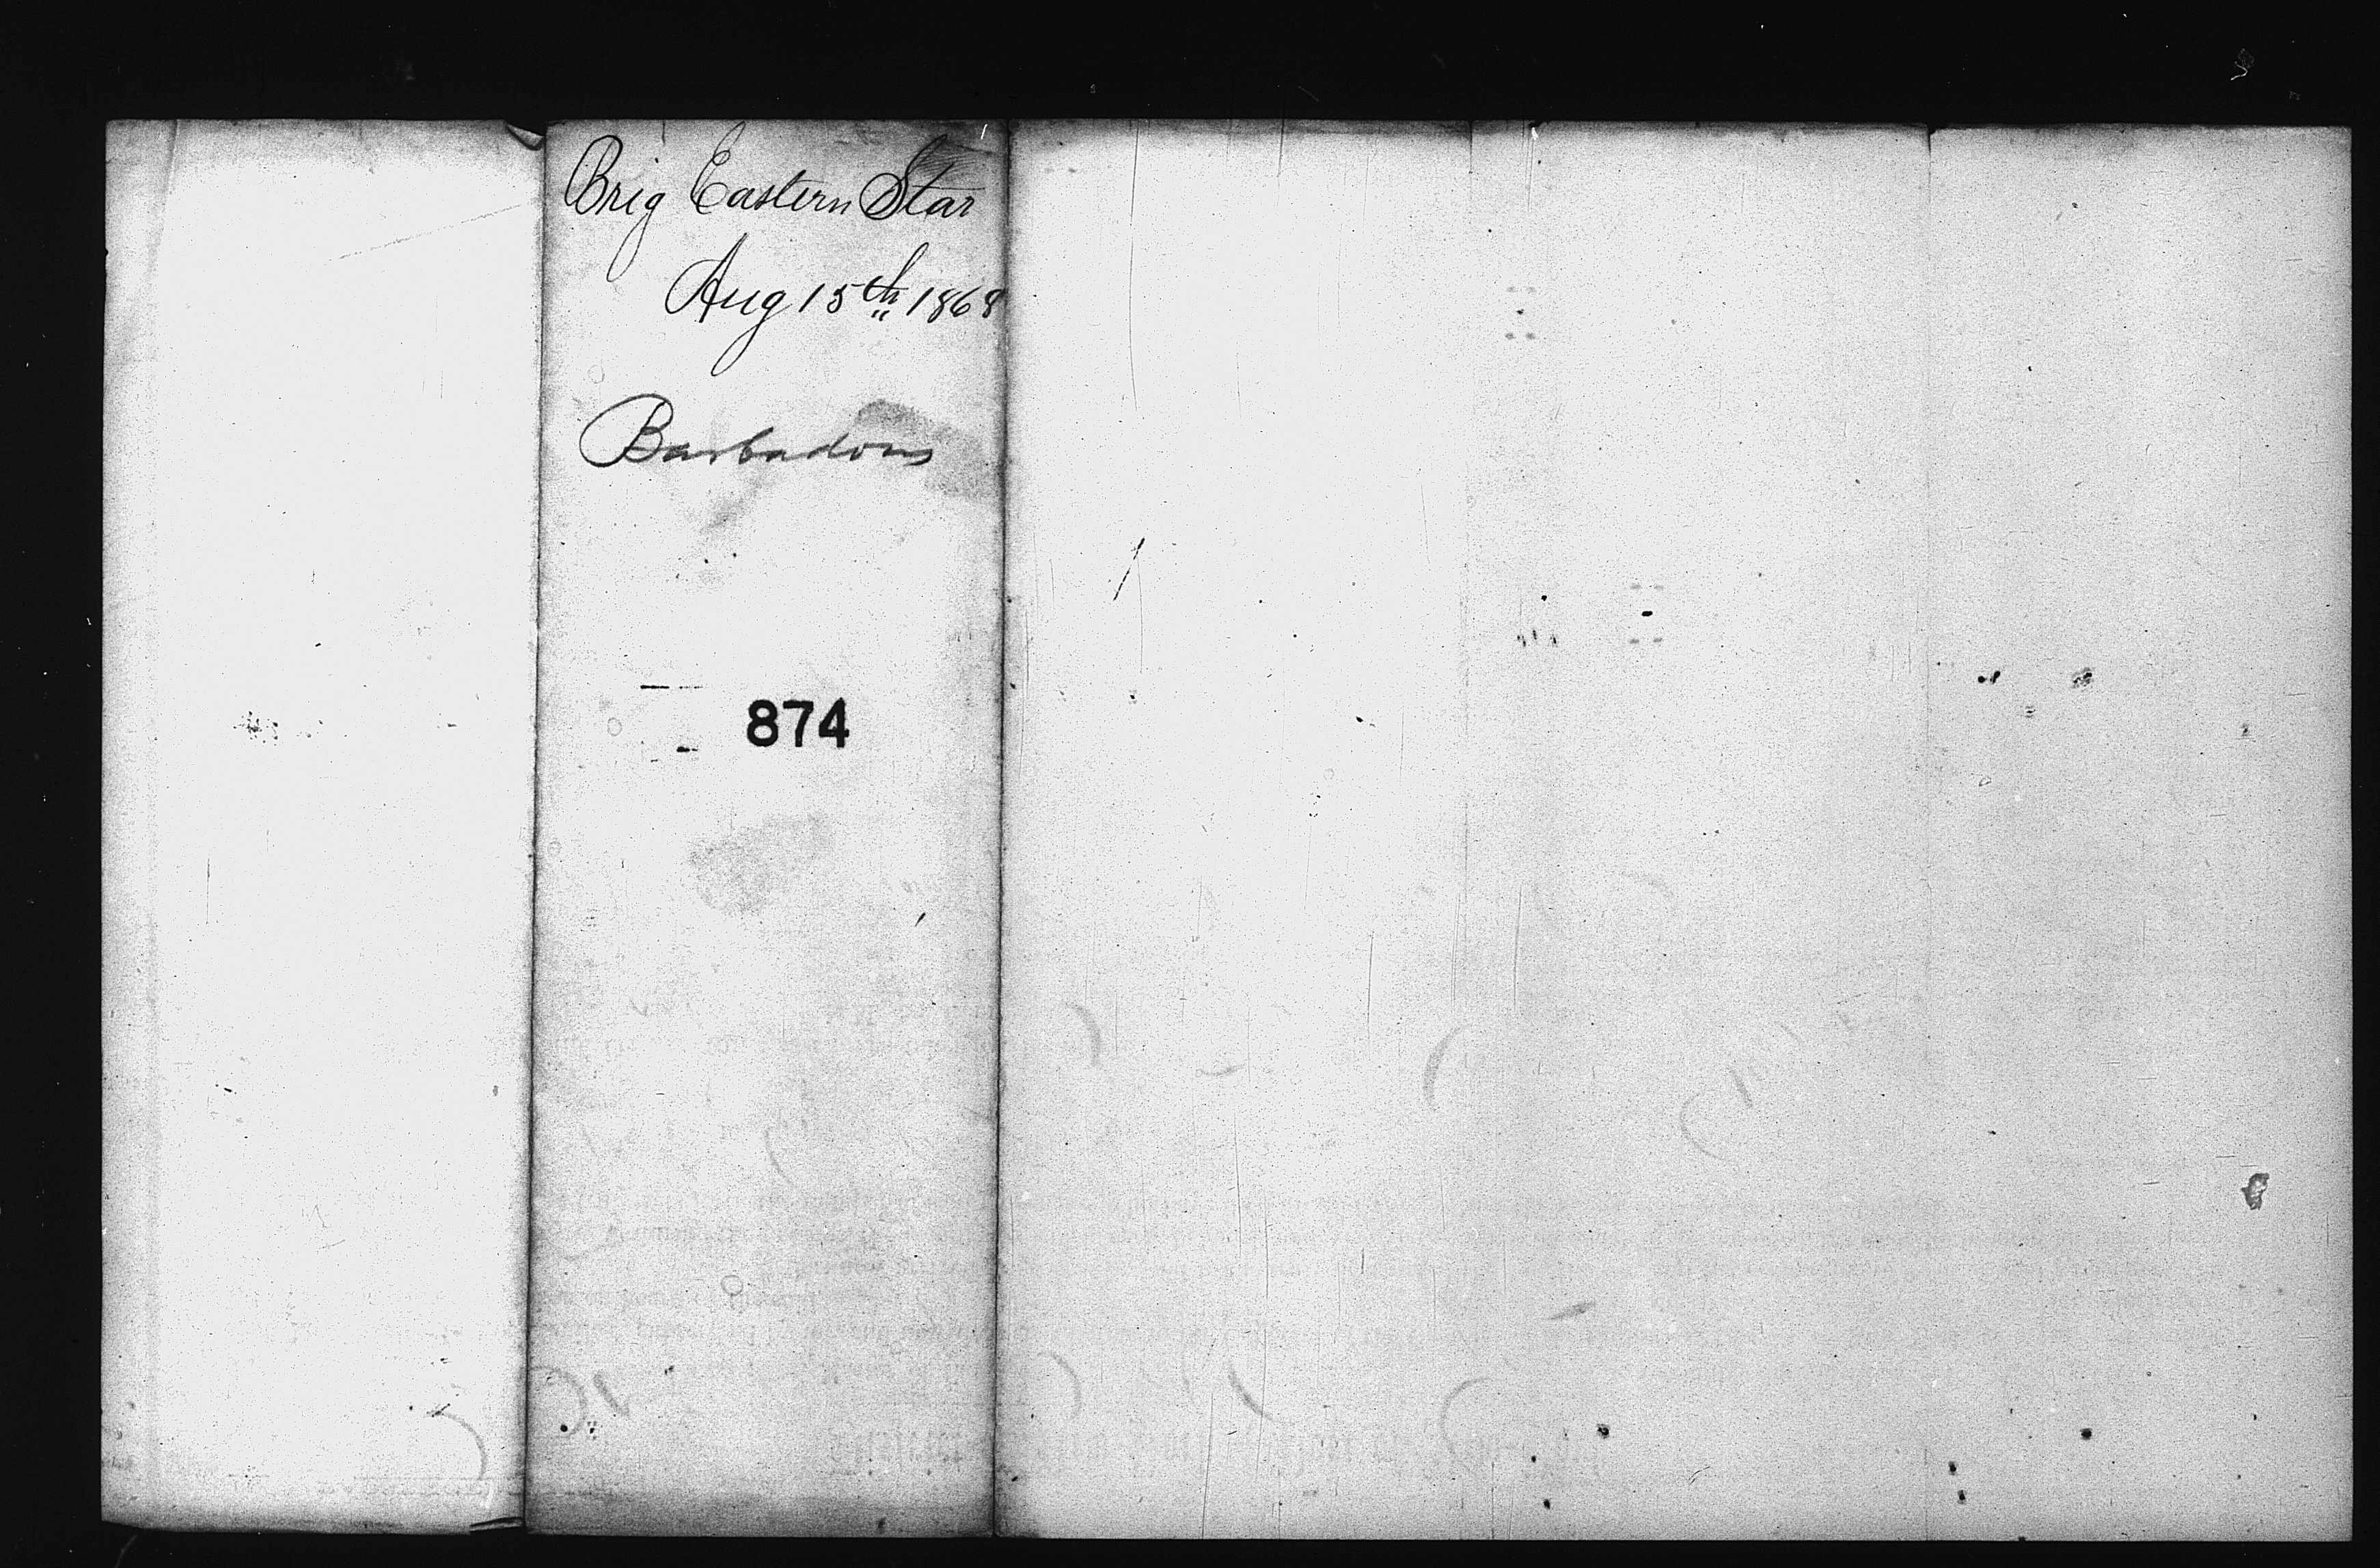 Brig Eastern Star
Aug 15th 1868
Barbadoes
874